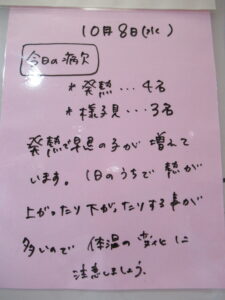 10月8日(水)
今日の病欠
*発熱…4名
*様子見…3名
発熱で早退の子が増えて
います。1日のうちで熱が
上がったり下がったりする事が
多いので体温の変化に
注意しましょう。